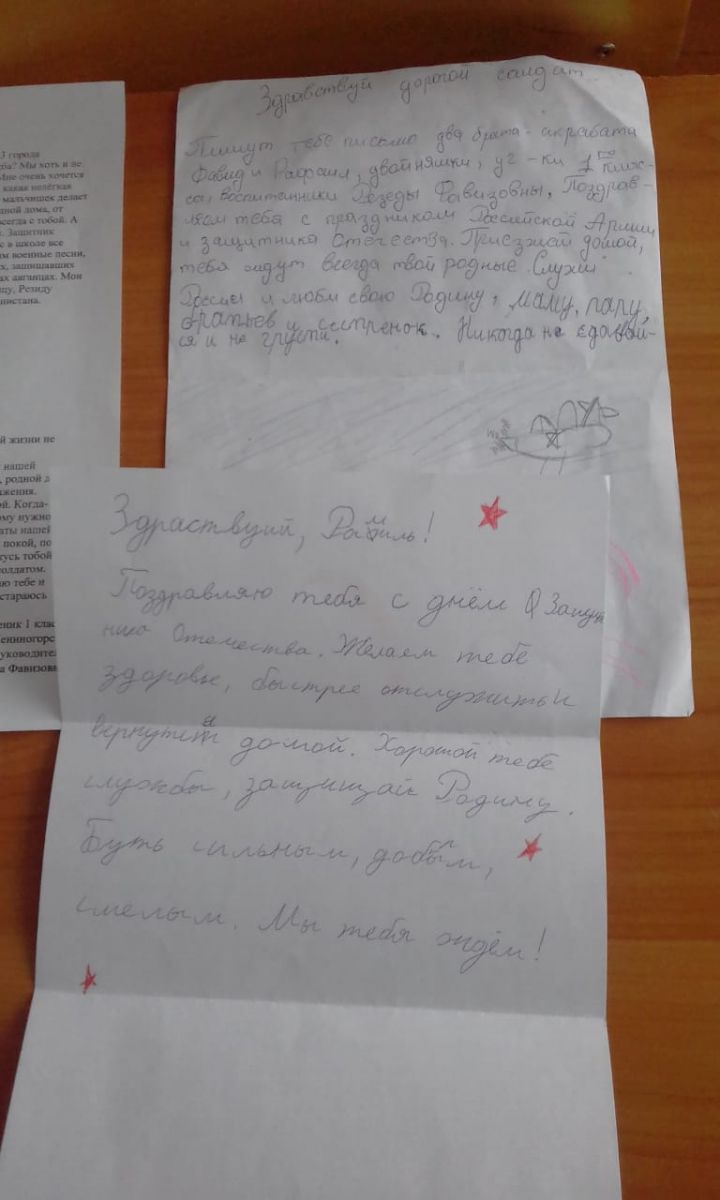 3 города
ба? Мы хоть и не
Мне очень хочется
какая нелёгкая
мальчишек делает
дной дома, от
всегда с тобой. А
. Защитник
с в школе все
м военные песни,
х, защищавших
ах афганцах. Мои
цу, Резиду
нистана.
ей жизни не
нашей
, родной д
жения.
ой. Когда-
ому нужно
аты нашей
покой, по
тусь тобой
олдатом.
ю тебе и
стараюсь
еник 1 клас
ениногорс
уководител
а Фавизов
Здравствуй дорогой солдат
Пишут тебе письмо два брата - акрабата
Фавид и Рафаил, двойняшки, уч-ки 1го клас-
са, воспитанники Резеды Фавизовны. Поздрав-
ляем тебя с праздником Российской Армии
и защитника Отечества. Приезжай домой,
тебя ждут всегда твои родные. Служи
России и люби свою Родину, маму, папу,
братьев и сестрёнок. Никогда не сдавай-
ся и не грусти.
Здраствуй, Рамиль!
Поздравляю тебя с днём Защит
ника Отечества. Желаем тебе
здоровье, быстрее отслужить и
вернутся домой. Хорошой тебе
службы, защищай Родину.
Буть сильным, добрым,
смелым. Мы тебя ждём!